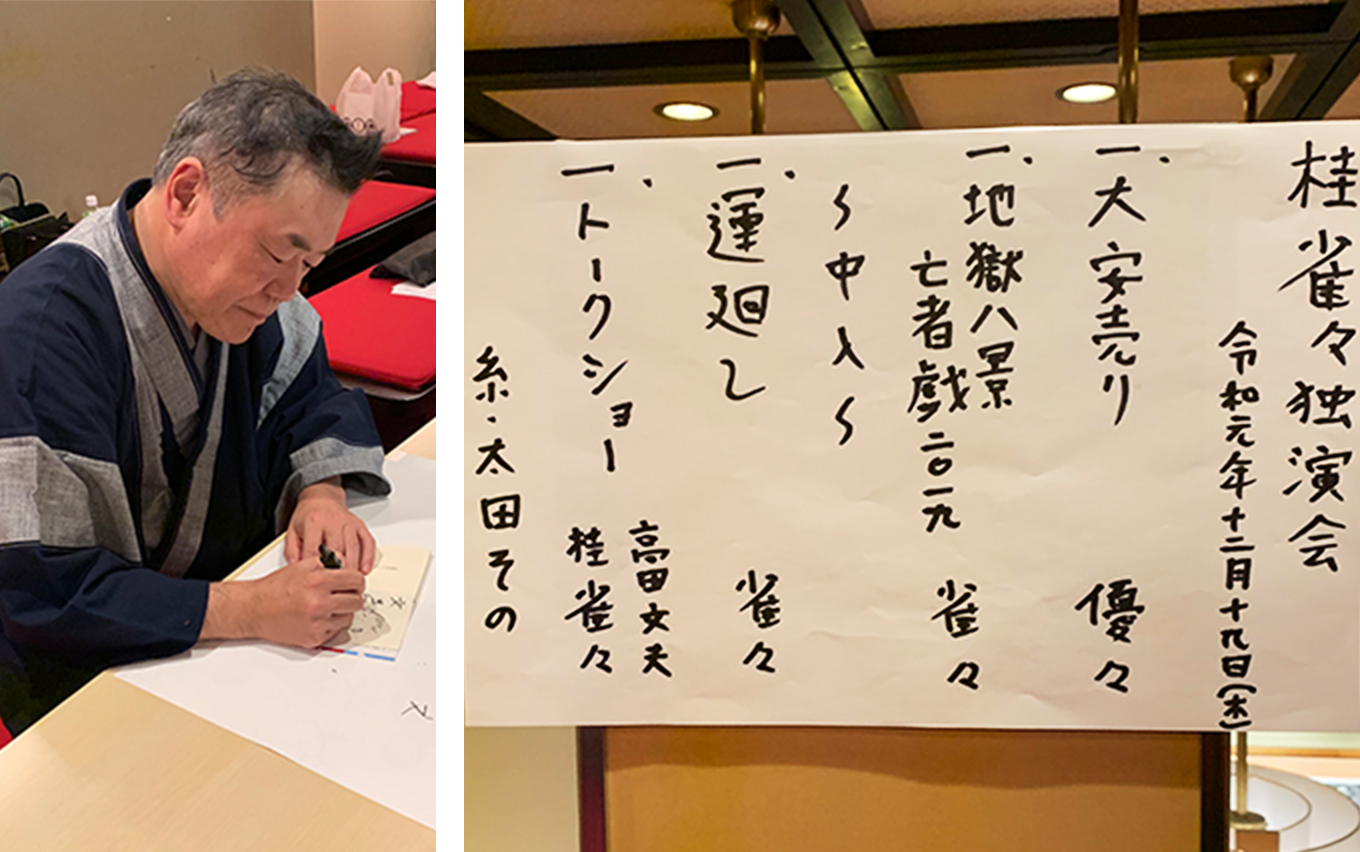 桂雀々独演会
令和元年十二月十九日(木)
一、大安売り 優々
一、地獄八景
亡者戯二〇一九 雀々
〜中入〜
一、運廻し 雀々
一、トークショー 高田文夫
桂雀々
糸・太田その